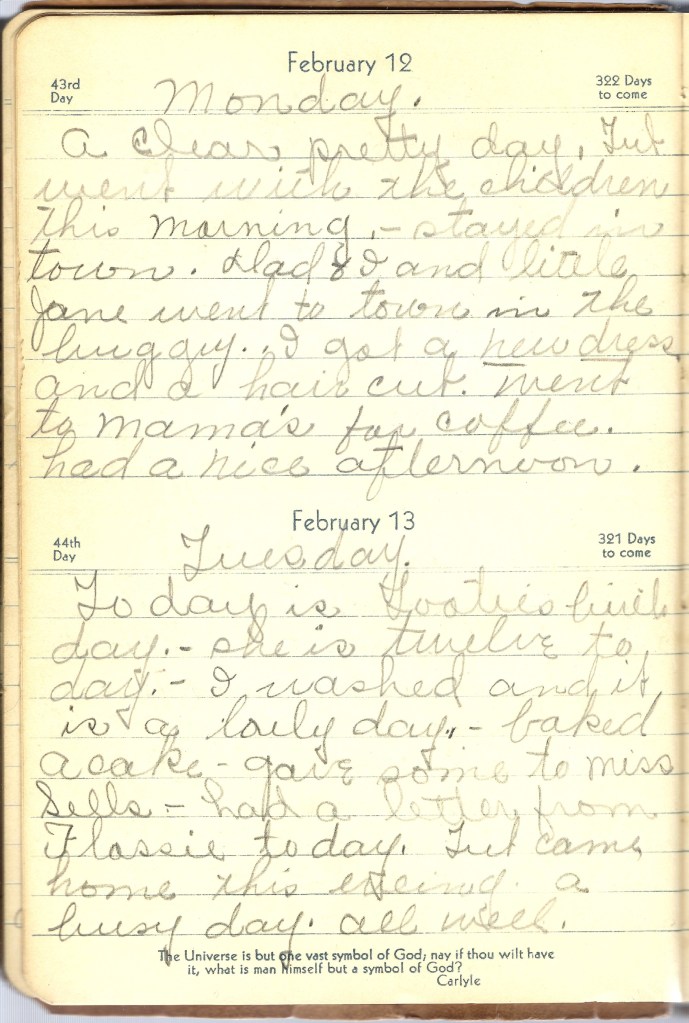 February 12
43rd Day
322 Days to come
Monday.
A clear pretty day, Tut
went with the children
this morning, - stayed in
town. Dad & I and little
Jane went to town in the
buggy. I got a new dress
and a hair cut. went
to mama's for coffee.
had a nice afternoon.
February 13
44th Day
321 Days to come
Tuesday.
To day is Tooties birth
day. - she is twelve to
day. - I washed and it
is a lovly day, - baked
a cake - gave some to miss
Sells - had a letter from
Flossie today. Tut came
home this eveing. a
busy day. all well.
The Universe is but one vast symbol of God; nay if thou wilt have
it, what is man himself but a symbol of God?
Carlyle